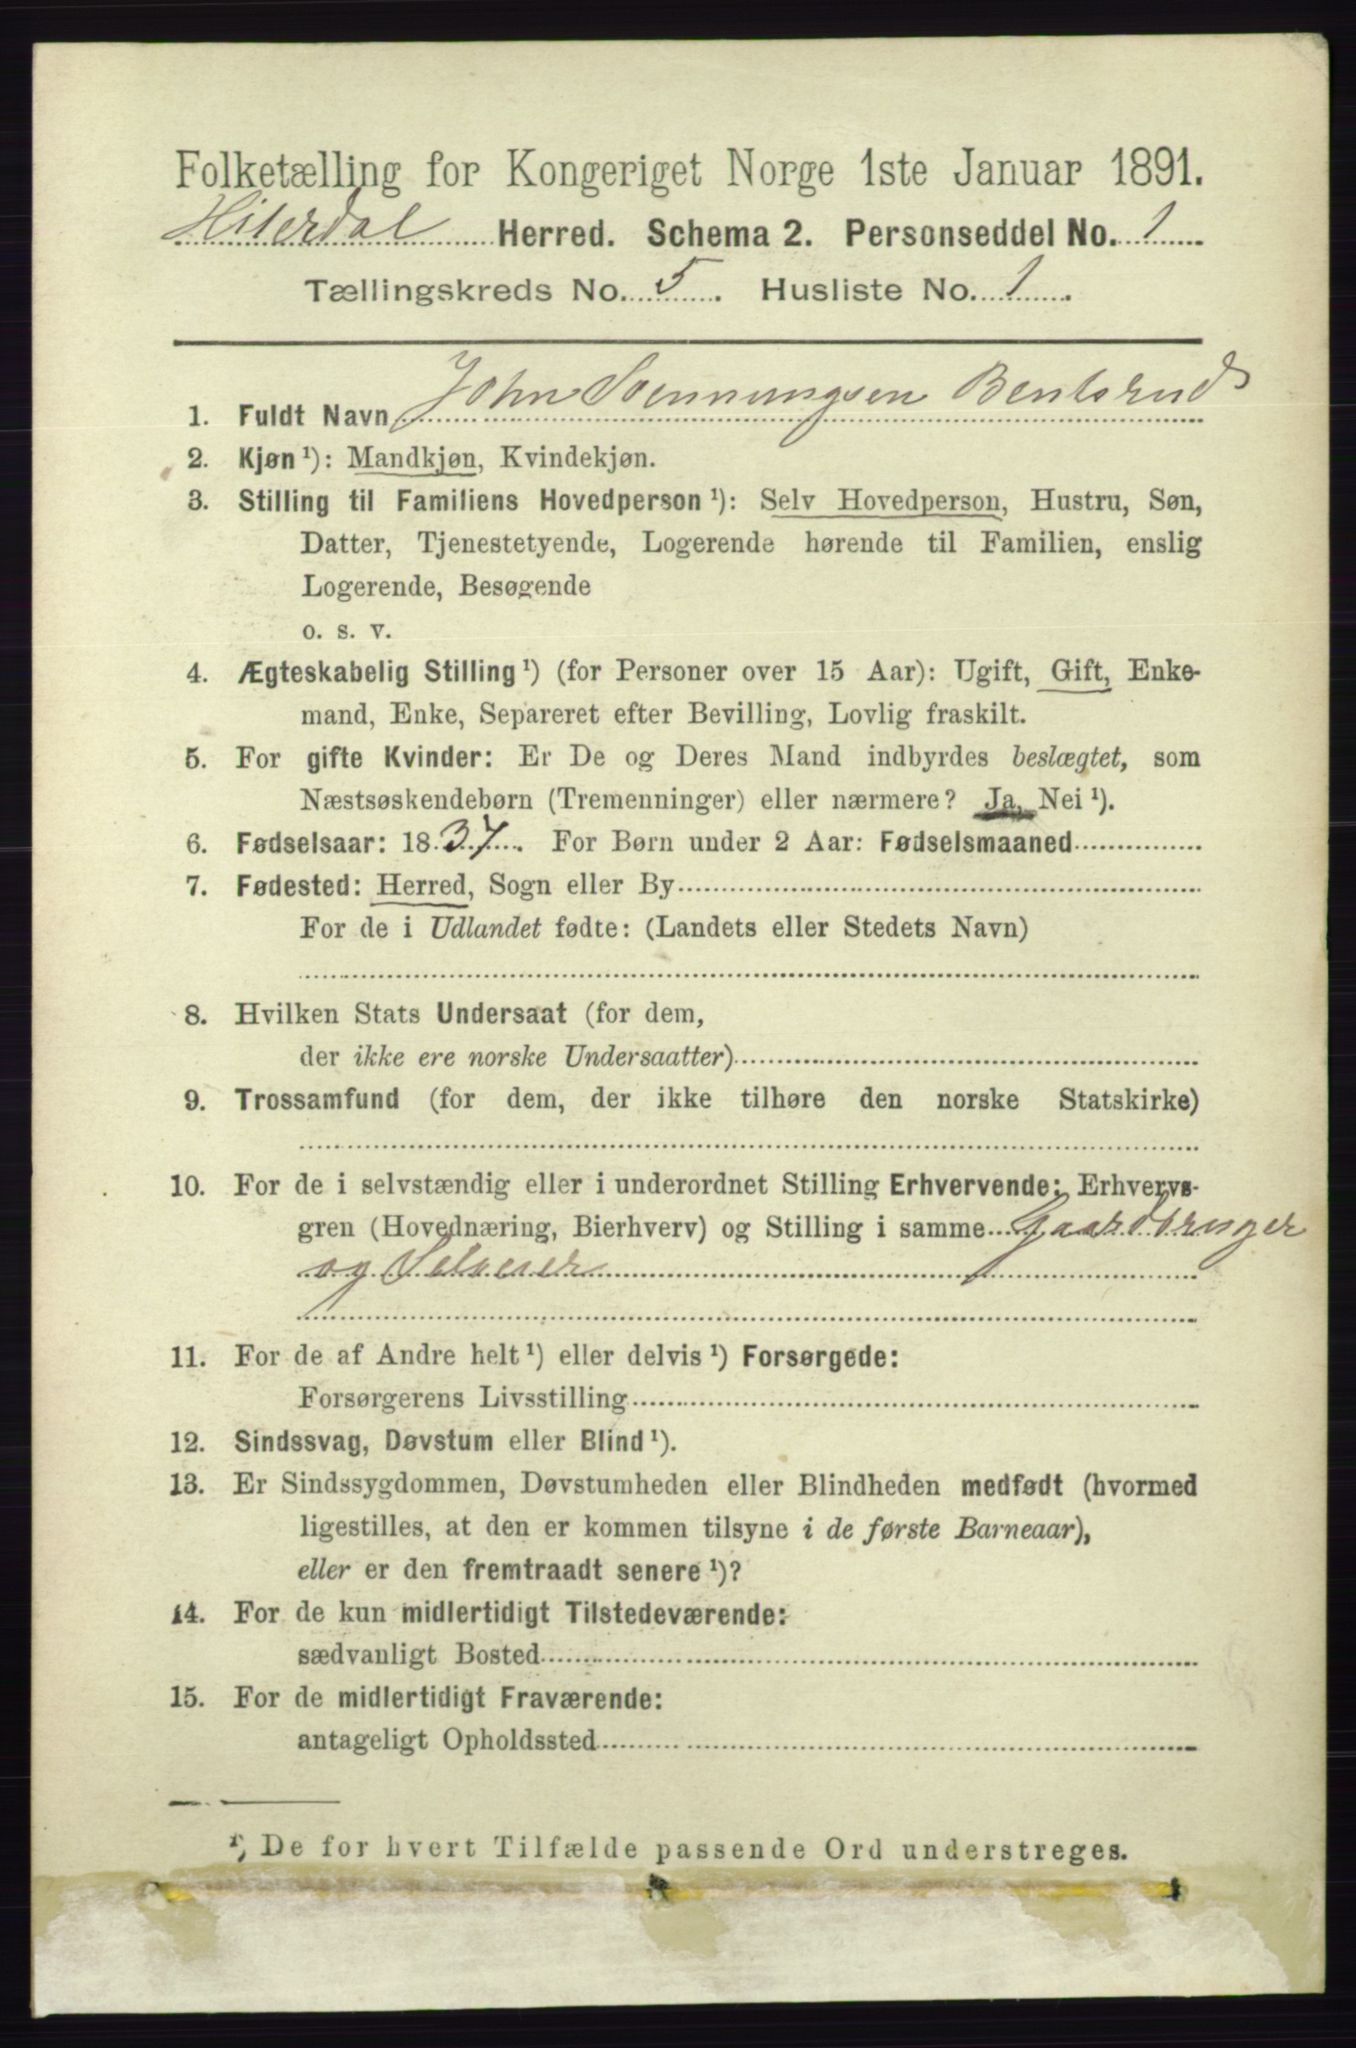 Folketælling for Kongeriget Norge 1ste Januar 1891.
Hiterdal Herred. Schema 2. Personseddel No. 1
Tællingskreds No. 5. Husliste No. 1.
1. Fuldt Navn John Svennungsen Bentsrud
2. Kjøn ¹): Mandkjøn, Kvindekjøn.
3. Stilling til Familiens Hovedperson ¹): Selv Hovedperson, Hustru, Søn,
Datter, Tjenestetyende, Logerende hørende til Familien, enslig
Logerende, Besøgende
o. s. v.
4. Ægteskabelig Stilling ¹) (for Personer over 15 Aar): Ugift, Gift, Enke-
mand, Enke, Separeret efter Bevilling, Lovlig fraskilt.
5. For gifte Kvinder: Er De og Deres Mand indbyrdes beslægtet, som
Næstsøskendebørn (Tremenninger) eller nærmere? Ja, Nei ¹).
6. Fødselsaar: 1837. For Børn under 2 Aar: Fødselsmaaned
7. Fødested: Herred, Sogn eller By
For de i Udlandet fødte: (Landets eller Stedets Navn)
8. Hvilken Stats Undersaat (for dem,
der ikke ere norske Undersaatter)
9. Trossamfund (for dem, der ikke tilhøre den norske Statskirke)
10. For de i selvstændig eller i underordnet Stilling Erhvervende: Erhvervs-
gren (Hovednæring, Bierhverv) og Stilling i samme Gaardbruger
og Selveier
11. For de af Andre helt ¹) eller delvis ¹) Forsørgede:
Forsørgerens Livsstilling
12. Sindssvag, Døvstum eller Blind ¹).
13. Er Sindssygdommen, Døvstumheden eller Blindheden medfødt (hvormed
ligestilles, at den er kommen tilsyne i de første Barneaar),
eller er den fremtraadt senere ¹)?
14. For de kun midlertidigt Tilstedeværende:
sædvanligt Bosted
15. For de midlertidigt Fraværende:
antageligt Opholdssted
¹) De for hvert Tilfælde passende Ord understreges.